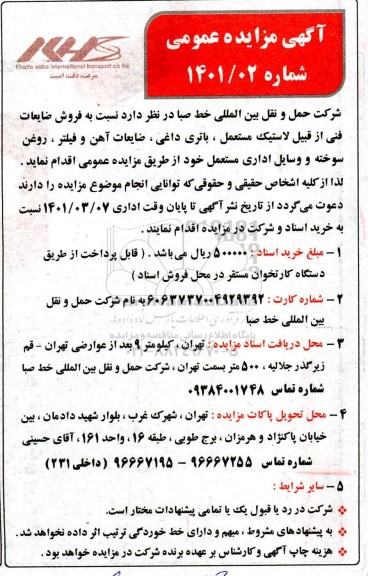 آگهی مزایده عمومی
شماره ۱۴۰۱/۰۲
Khatte saba international transport.co ltd
سرعت، دقت، امنیت
شرکت حمل و نقل بین المللی خط صبا در نظر دارد نسبت به فروش ضایعات
فنی از قبیل لاستیک مستعمل ، باتری داغی ، ضایعات آهن و فیلتر ، روغن
سوخته و وسایل اداری مستعمل خود از طریق مزایده عمومی اقدام نماید .
لذا ازکلیه اشخاص حقیقی و حقوقی‌که توانایی انجام موضوع مزایده را دارند
دعوت می‌گردد از تاریخ نشر آگهی تا پایان وقت اداری ۱۴۰۱/۰۳/۰۷ نسبت
به خرید اسناد و شرکت در مزایده اقدام نمایند .
۱- مبلغ خرید اسناد : ۵۰۰۰۰۰ ریال می‌باشد . ( قابل پرداخت از طریق
دستگاه کارتخوان مستقر در محل فروش اسناد )
۲- شماره کارت : ۶۰۶۳۷۳۷۰۰۴۹۲۹۳۹۲ به نام شرکت حمل و نقل
بین المللی خط صبا
۳- محل دریافت اسناد مزایده : تهران ، کیلومتر ۹ بعد از عوارضی تهران - قم
زیرگذر جلالیه ، ۵۰۰ متر بسمت تهران ، شرکت حمل و نقل بین المللی خط صبا
شماره تماس ۰۹۳۸۴۰۰۱۷۴۸
۴- محل تحویل پاکات مزایده : تهران ، شهرک غرب ، بلوار شهید دادمان ، بین
خیابان پاکنژاد و هرمزان ، برج طوبی ، طبقه ۱۶ ، واحد ۱۶۱ ، آقای حسینی
شماره تماس ۹۶۶۶۷۲۵۵ - ۹۶۶۶۷۱۹۵ (داخلی ۲۳۱)
۵- سایر شرایط :
شرکت در رد یا قبول یک یا تمامی پیشنهادات مختار است.
به پیشنهادهای مشروط ، مبهم و دارای خط خوردگی ترتیب اثر داده نخواهد شد .
هزینه چاپ آگهی و کارشناس بر عهده برنده شرکت در مزایده خواهد بود .